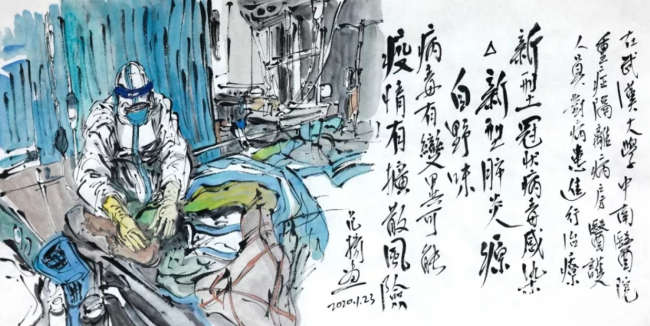 在武漢大學中南醫院
重症隔離病房醫護
人員對病患進行治療
新型冠狀病毒感染
△新型肺炎源
自野味
病毒有變異可能
疫情有擴散風險
范揚画
2020.1.23